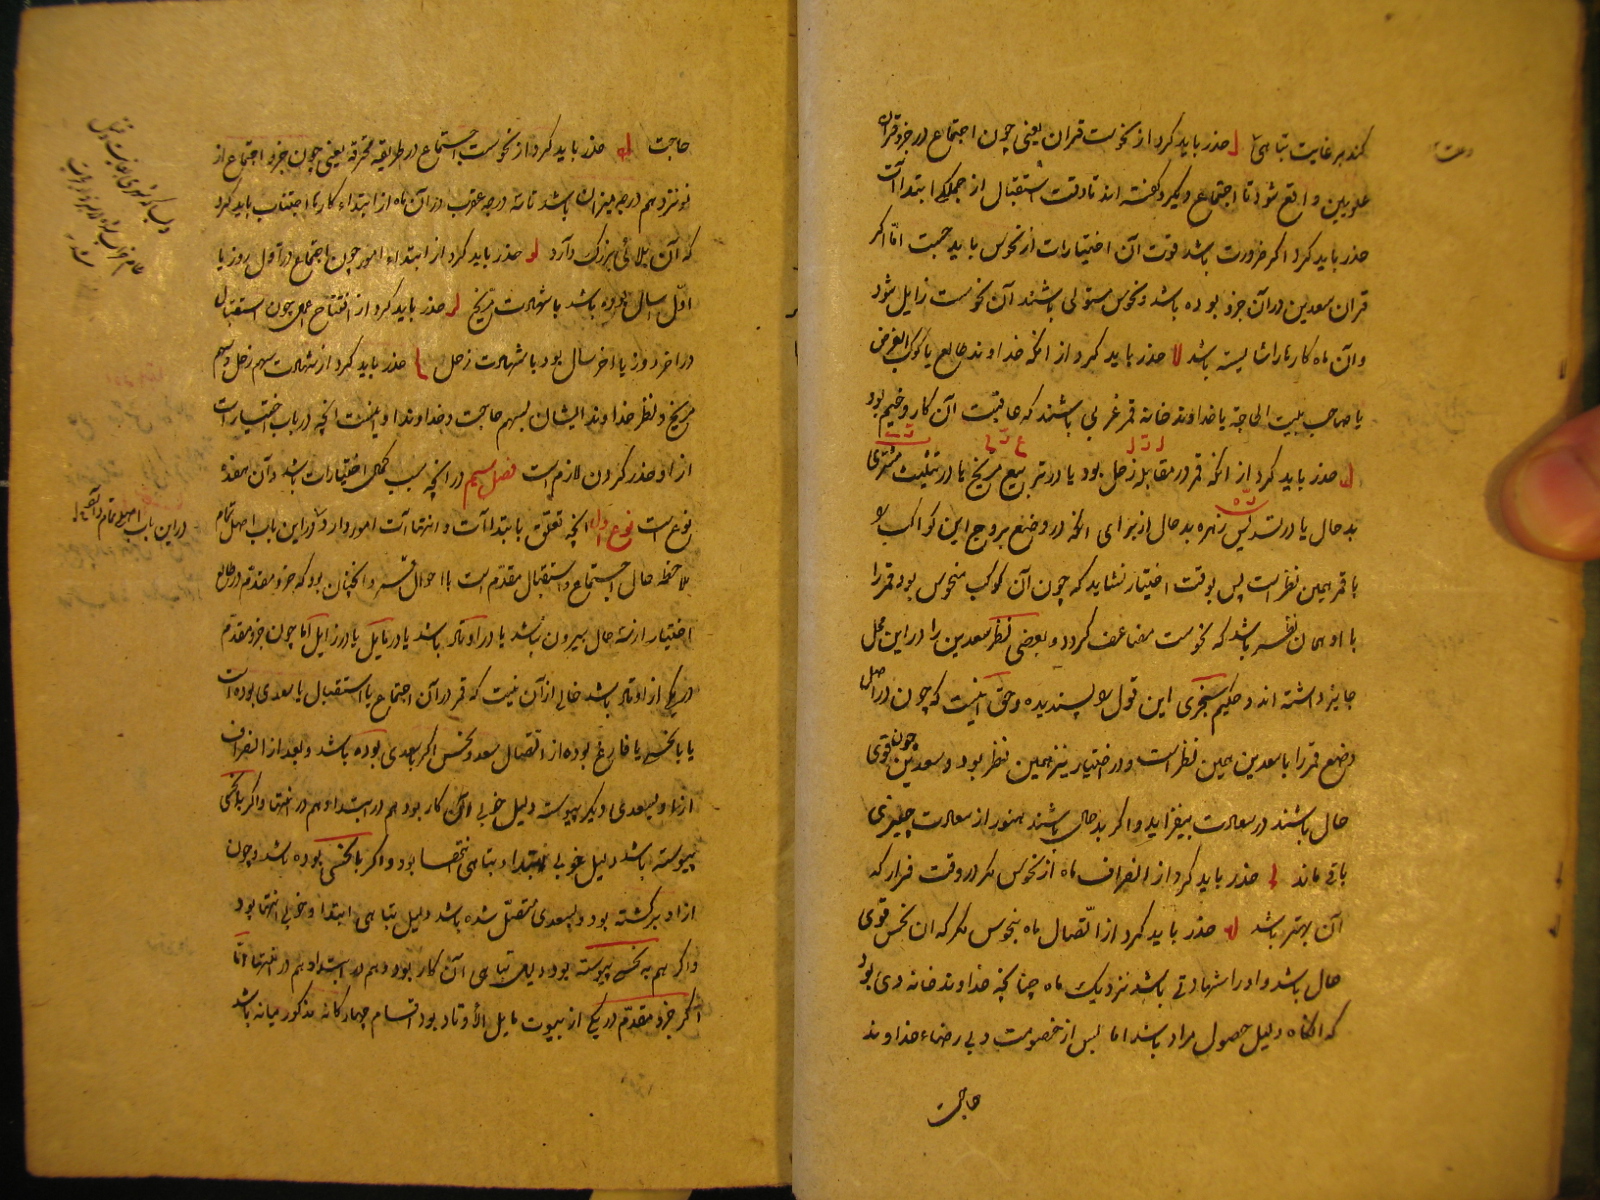 کند بر غایت تباهی ل حذر باید کرد از نحوست قران یعنی چون اجتماع در جزو قران
علویین واقع شود تا اجتماع دیگر و گفته اند تا وقت استقبال از جمله ابتداآت
حذر باید کرد اگر ضرورت باشد قوت آن اختیارات از نحوس باید جست اما اگر
قران سعدین در آن جزو بوده باشد و نحوس مستولی باشند آن نحوست زایل شود
و آن ماه کارها را شایسته باشد لا حذر باید کرد از انکه خداوند طالع یا کوکب الغرض
یا صاحب بیت الحاجة یا خداوند خانه قمر غربی باشند که عاقبت آن کار وخیم بود
لب حذر باید کرد از انکه قمر در مقابل زحل بود یا در تربیع مریخ یا در تثلیث مشتری
بد حال یا در تسدیس زهره بد حال از برای انکه در وضع بروج این کواکب را
با قمر همین نظر است پس بوقت اختیار نشاید که چون آن کوکب منحوس بود قمر را
با او همان نظر باشد که نحوست مضاعف گردد و بعضی نظر سعدین را در این محل
جایز داشته اند و حکیم سجزی این قول را پسندیده و حق اینست که چون در اصل
وضع قمر را با سعدین همین نظر است و در اختیار نیز همین نظر بود و سعدین چون قوی
حال باشند در سعادت بیفزاید و اگر بد حال باشند هنوز از سعادت چیزی
باقی ماند لج حذر باید کرد از انصراف ماه از نحوس مگر در وقت فرار که
آن بهتر باشد لد حذر باید کرد از اتصال ماه بنحوس مگر که ان نحس قوی
حال باشد و او را شهادتی باشد نزدیک ماه چنانچه خداوند خانه وی بود
که انگاه دلیل حصول مراد باشد اما پس از خصومت و بی رضاء خداوند
حاجت
حاجت له حذر باید کرد از نحوست اجتماع در طریقه محترقه یعنی چون جزو اجتماع از
نوزدهم درجه میزان باشد تا سه درجه عقرب در آن ماه از ابتداء کارها اجتناب باید کرد
که آن بلائی بزرگ دارد لو حذر باید کرد از ابتداء امور چون اجتماع در اول روز یا
اول سال بوده باشد با شهادت مریخ لز حذر باید کرد از افتتاح عمل چون استقبال
در اخر روز یا اخر سال بود با شهادت زحل لح حذر باید کرد از شهادت سهم زحل و سهم
مریخ و نظر خداوند ایشان بسهم حاجت و خداوند او اینست انچه در باب اختیارات
از او حذر کردن لازم است فصل سیم در انچه سبب کمال اختیارات باشد و آن هفده
نوع است نوع اول انچه تعلق بابتداآت و انتهاآت امور دارد و در این باب اصل تمام
ملاحظه حال اجتماع و استقبال مقدم است با احوال قمر و انچنان بود که جزو مقدم در طالع
اختیار از سه حال بیرون نباشد یا در اوتاد باشد یا در مایل یا در زایل اما چون جزو مقدم
در یکی از اوتاد باشد خالی از آن نیست که قمر در آن اجتماع یا استقبال یا سعدی بوده است
یا با نحس یا فارغ بوده از اتصال سعد و نحس اگر بسعدی بوده باشد و بعد از انصراف
از او بسعدی دیگر پیوسته دلیل خوبی آن کار بود هم در ابتدا و هم در انتها و اگر بنحسی
پیوسته باشد دلیل خوبی ابتدا و تباهی انتها بود و اگر با نحسی بوده باشد و چون
از او برگشته بود و بسعدی متصل شده باشد دلیل تباهی ابتدا و خوبی انتها بود
و اگر هم به نحسی پیوسته بود دلیل تباهی آن کار بود و هم در ابتدا و هم در انتها اما
اگر جزو مقدم در یکی از بیوت مایل الاوتاد بود اقسام چهارگانه مذکور میانه باشد
در این باب اصل تمام